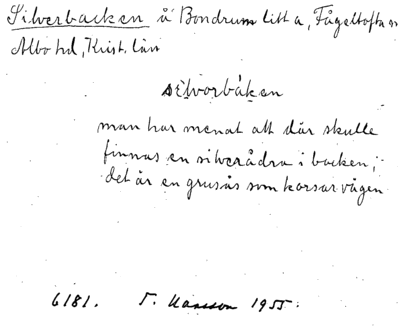 Silverbacken å Bondrum litt a, Fågeltofta sn
Albo hd, Krist. län
silvorbáken
man har menat att där skulle
finnas en silverådra i backen;
det är en grusås som korsar vägen
6181. Hansson 1955.